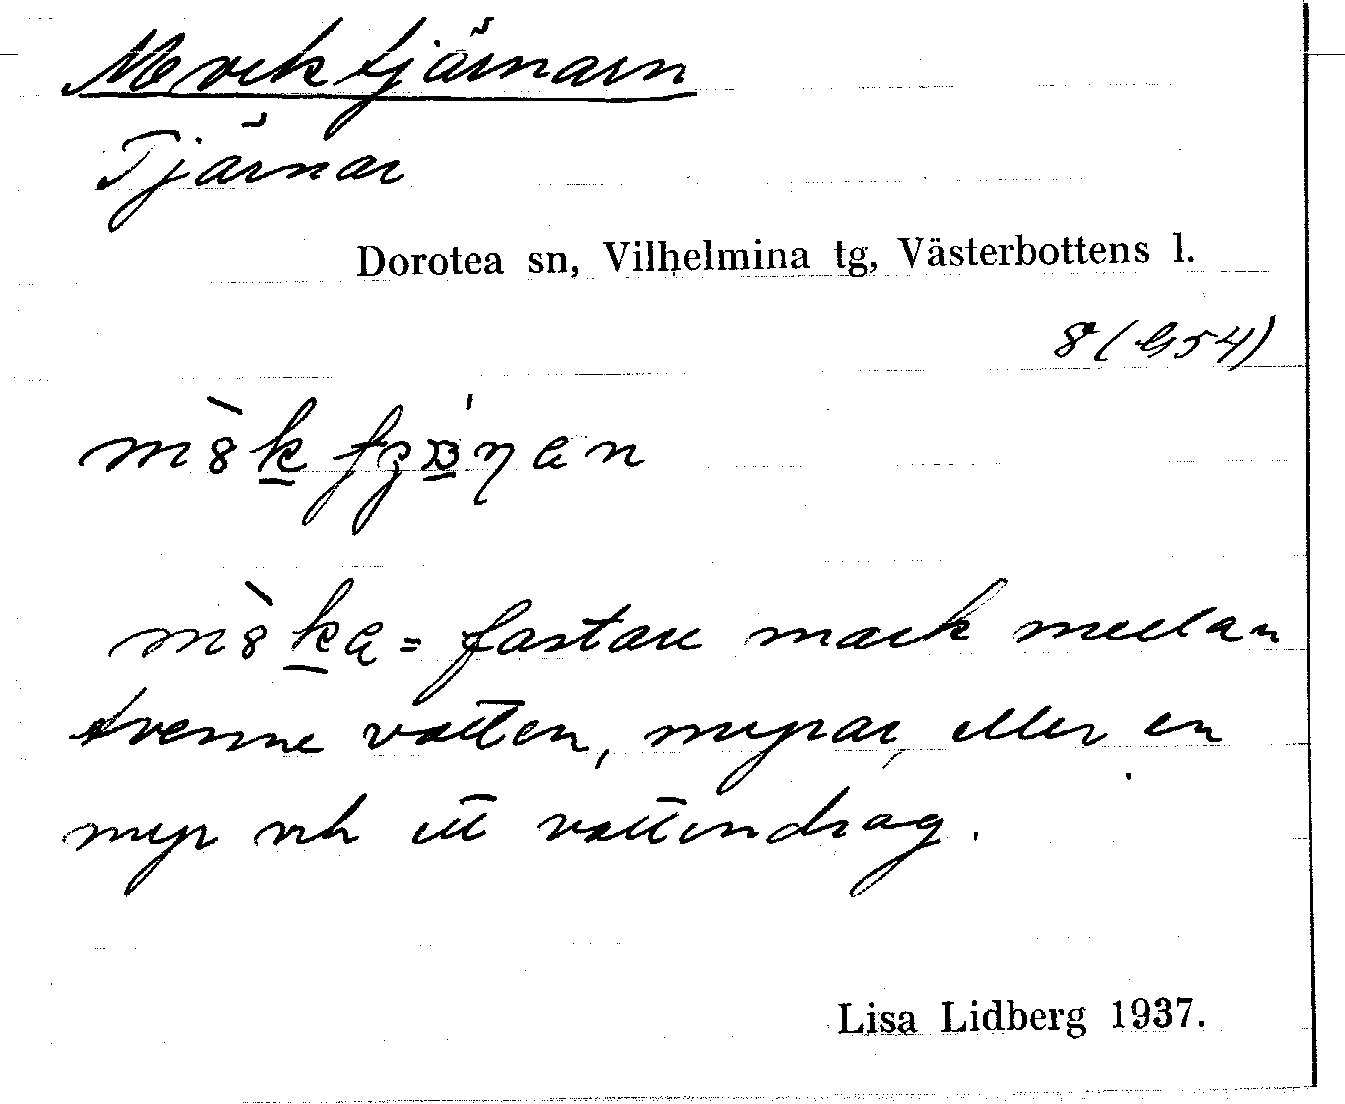 Mvektjärnarn
Tjärnar
Dorotea sn, Vilhelmina tg, Västerbottens l.
8 (G54)
fastare mark mellan
tvenne vatten, myrar, eller en
myr och ett vattendrag.
Lisa Lidberg 1937.